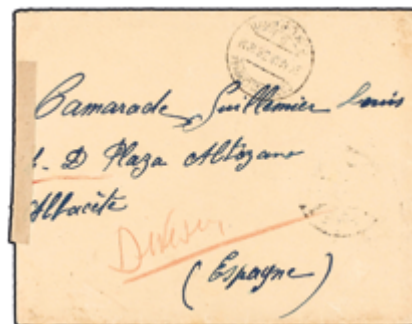 Camarade Guillemier Louis
1. D Plaza Altozano
Albacète
(Espagne)